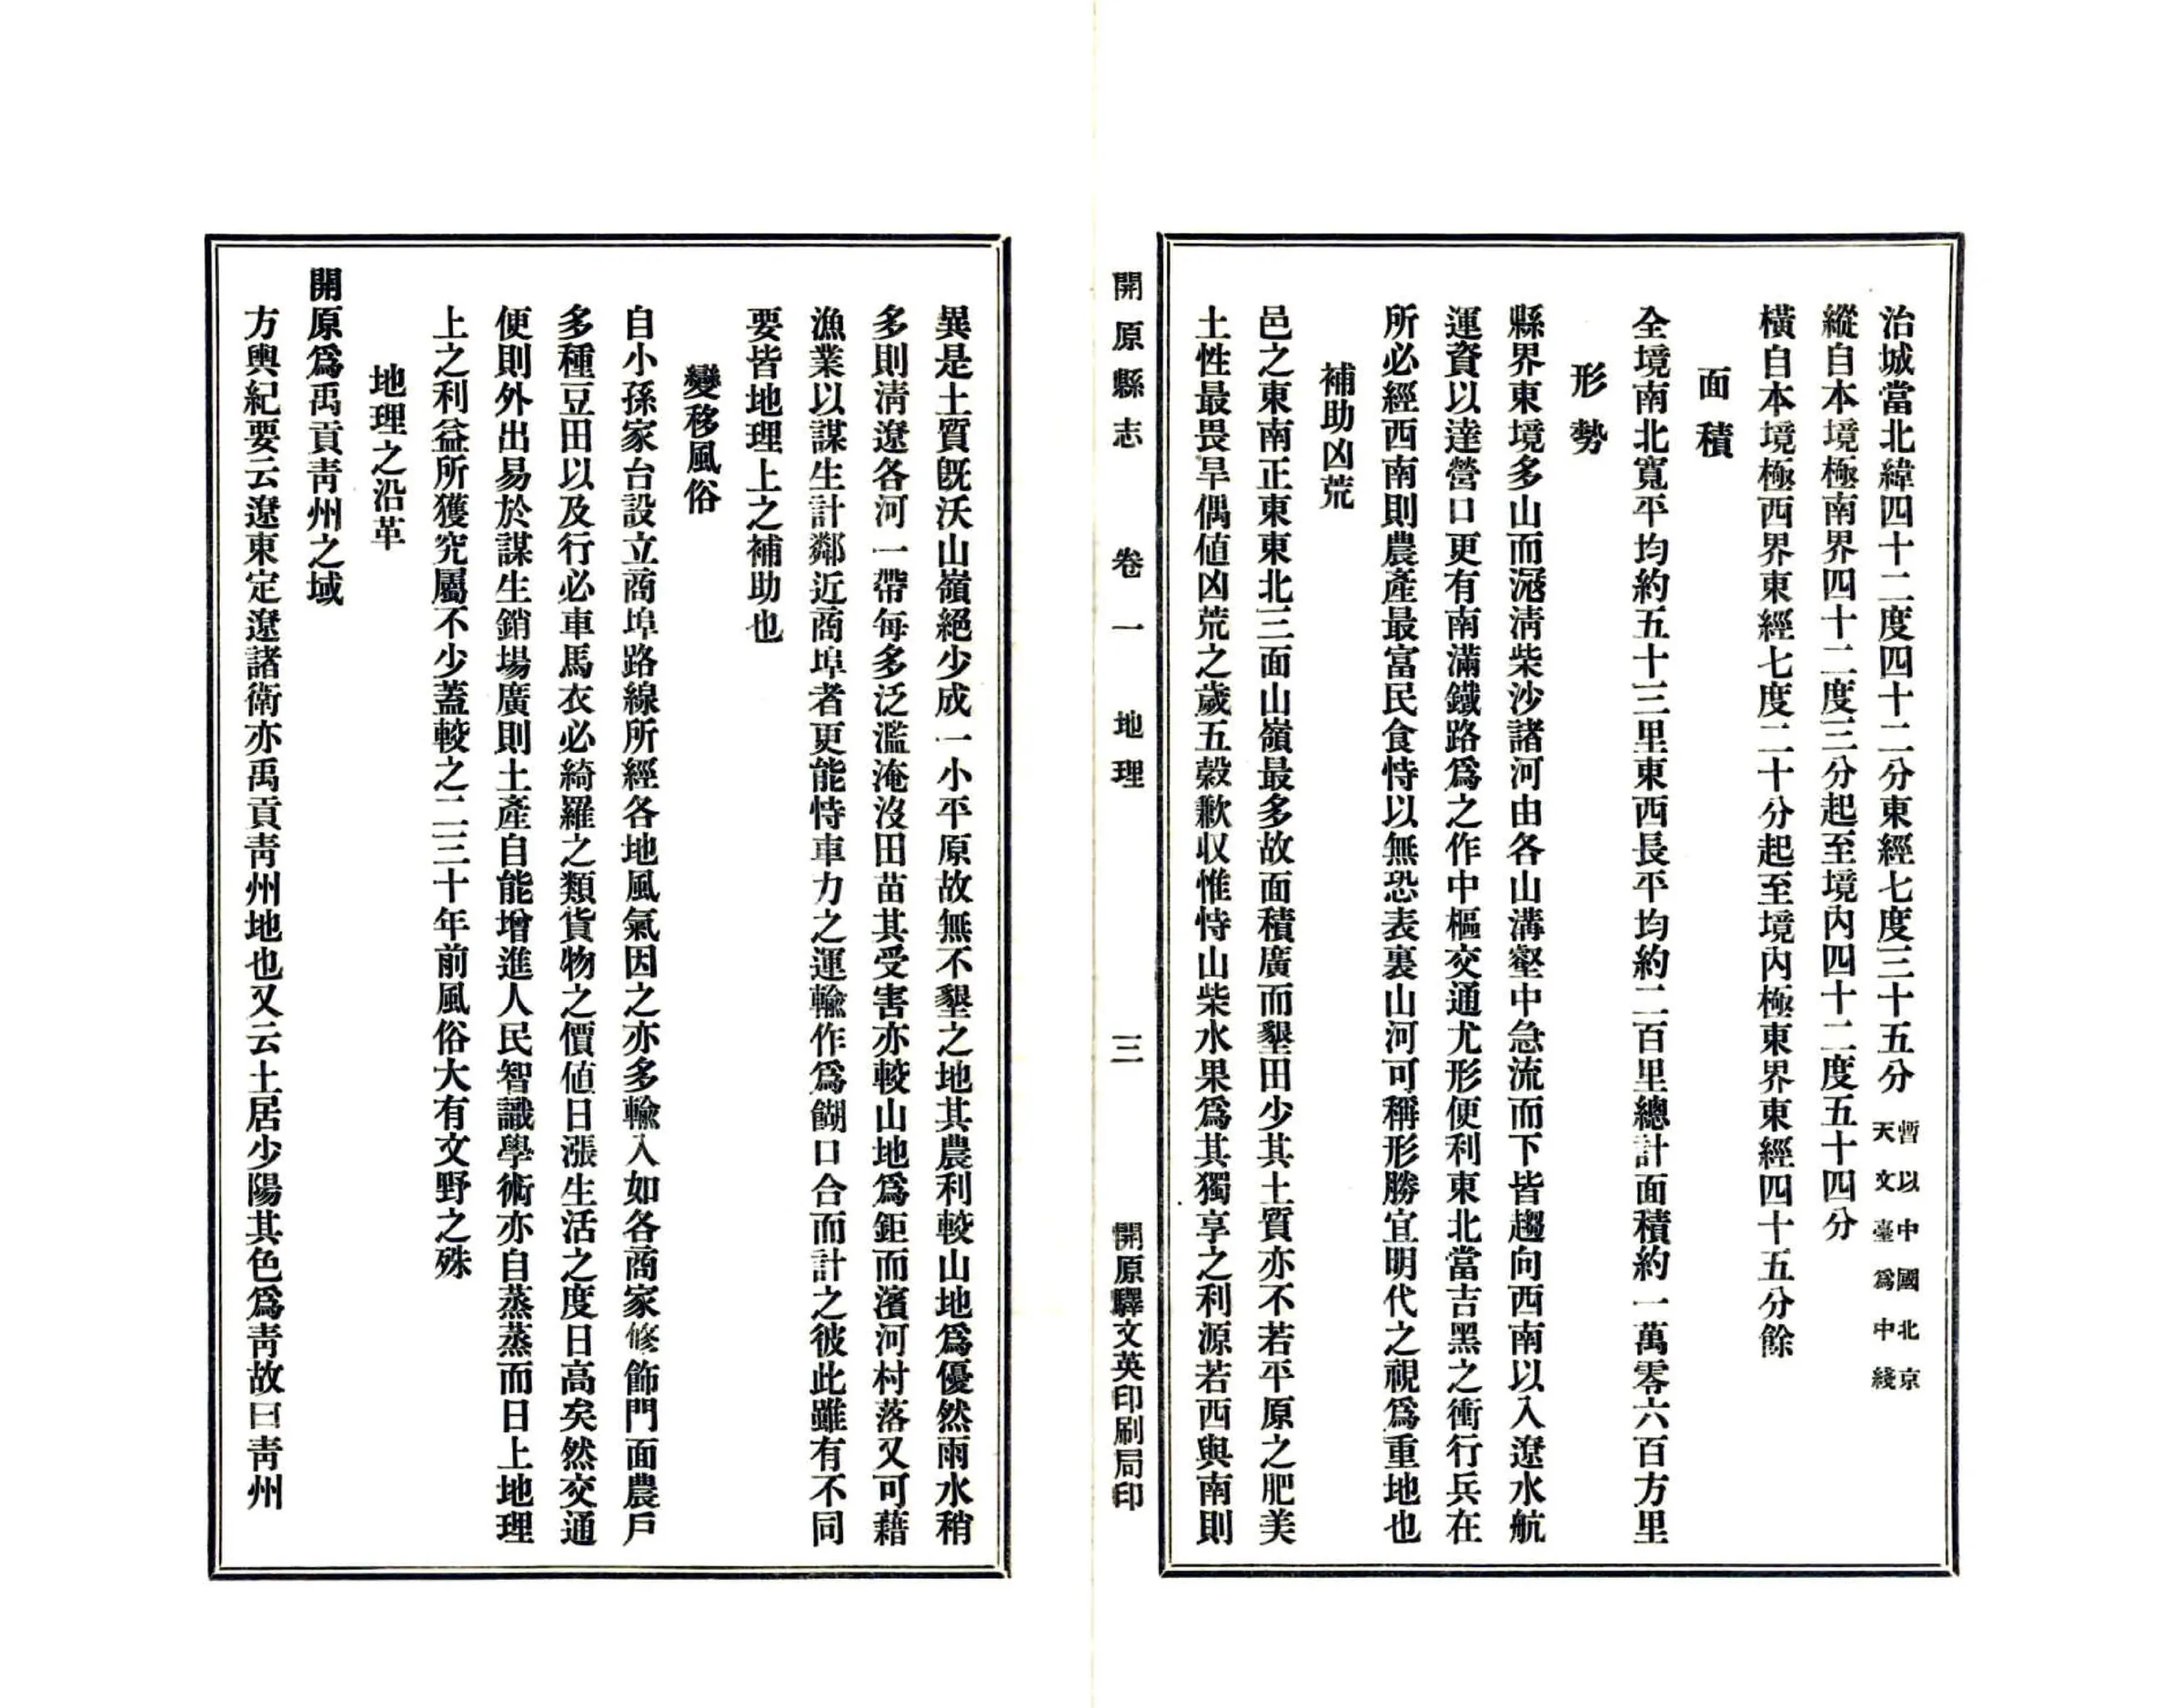 治城當北緯四十二度四十二分東經七度三十五分暫以中國北京天文臺爲中綫
縱自本境極南界四十二度三分起至境內四十二度五十四分
橫自本境極西界東經七度二十分起至境內極東界東經四十五分餘
面積
全境南北寬平均約五十三里東西長平均約二百里總計面積約一萬零六百方里
形勢
縣界東境多山而㴲淸柴沙諸河由各山溝壑中急流而下皆趨向西南以入遼水航
運資以達營口更有南滿鐵路爲之作中樞交通尤形便利東北當吉黑之衝行兵在
所必經西南則農產最富民食恃以無恐表裏山河可稱形勝宜明代之視爲重地也
補助凶荒
邑之東南正東東北三面山嶺最多故面積廣而墾田少其土質亦不若平原之肥美
土性最畏旱偶值凶荒之歲五穀歉収惟恃山柴水果爲其獨享之利源若西與南則
開原縣志 卷一 地理 三 開原驛文英印刷局印
異是土質旣沃山嶺絕少成一小平原故無不墾之地其農利較山地爲優然雨水稍
多則淸遼各河一帶每多泛濫淹沒田苗其受害亦較山地爲鉅而濱河村落又可藉
漁業以謀生計鄰近商埠者更能恃車力之運輸作爲餬口合而計之彼此雖有不同
要皆地理上之補助也
變移風俗
自小孫家台設立商埠路線所經各地風氣因之亦多輸入如各商家修飾門面農戶
多種豆田以及行必車馬衣必綺羅之類貨物之價値日漲生活之度日高矣然交通
便則外出易於謀生銷場廣則土產自能增進人民智識學術亦自蒸蒸而日上地理
上之利益所獲究屬不少蓋較之二三十年前風俗大有文野之殊
地理之沿革
開原爲禹貢靑州之域
方輿紀要云遼東定遼諸衛亦禹貢靑州地也又云土居少陽其色爲靑故曰靑州